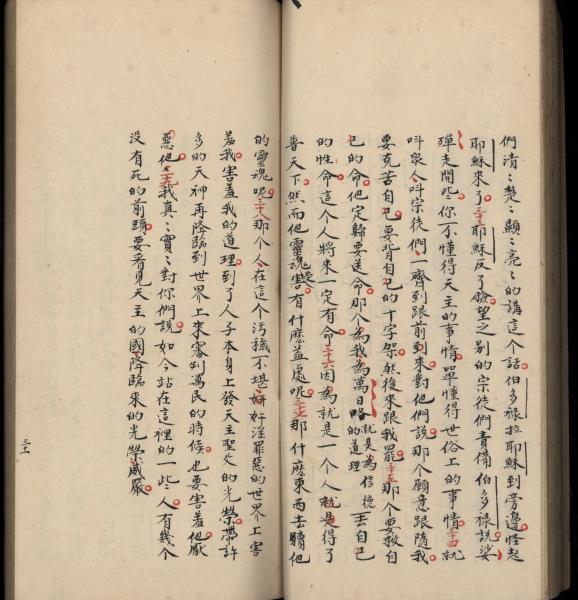 們清〻楚〻顯〻亮〻的講這个話伯多祿拉耶穌到旁邊怪起
耶穌來了三十三耶穌反了臉望之别的宗徒們責備伯多祿説娑
殫走開些你不懂得天主的事情單懂得世俗上的事情三十四就
呌衆人呌宗徒們一齊到跟前到來對他們説那个願意跟隨我
要克苦自己要背自己的十字架然後來跟我罷三十五那个要救自
己的命他定歸要送命那个為我為萬日略就是為信德的道理丢自己
的性命這个人將來一定有命三十六因為就是一个人就是得了
普天下然而他靈魂受害有什麽益處呢三十七那什麽東西去贖他
的靈魂呢三十八那个人在這个污穢不堪奸奸淫罪惡的世界上害
羞我害羞我的道理到了人子本身上發天主聖父的光榮帶許
多的天神再降臨到世界上來審判萬民的時候也要害羞他厭
惡他三十九我真〻實〻對你們説如今站在這裡的一些人有幾个
没有死的前頭要看見天主的國降臨來的光榮威嚴